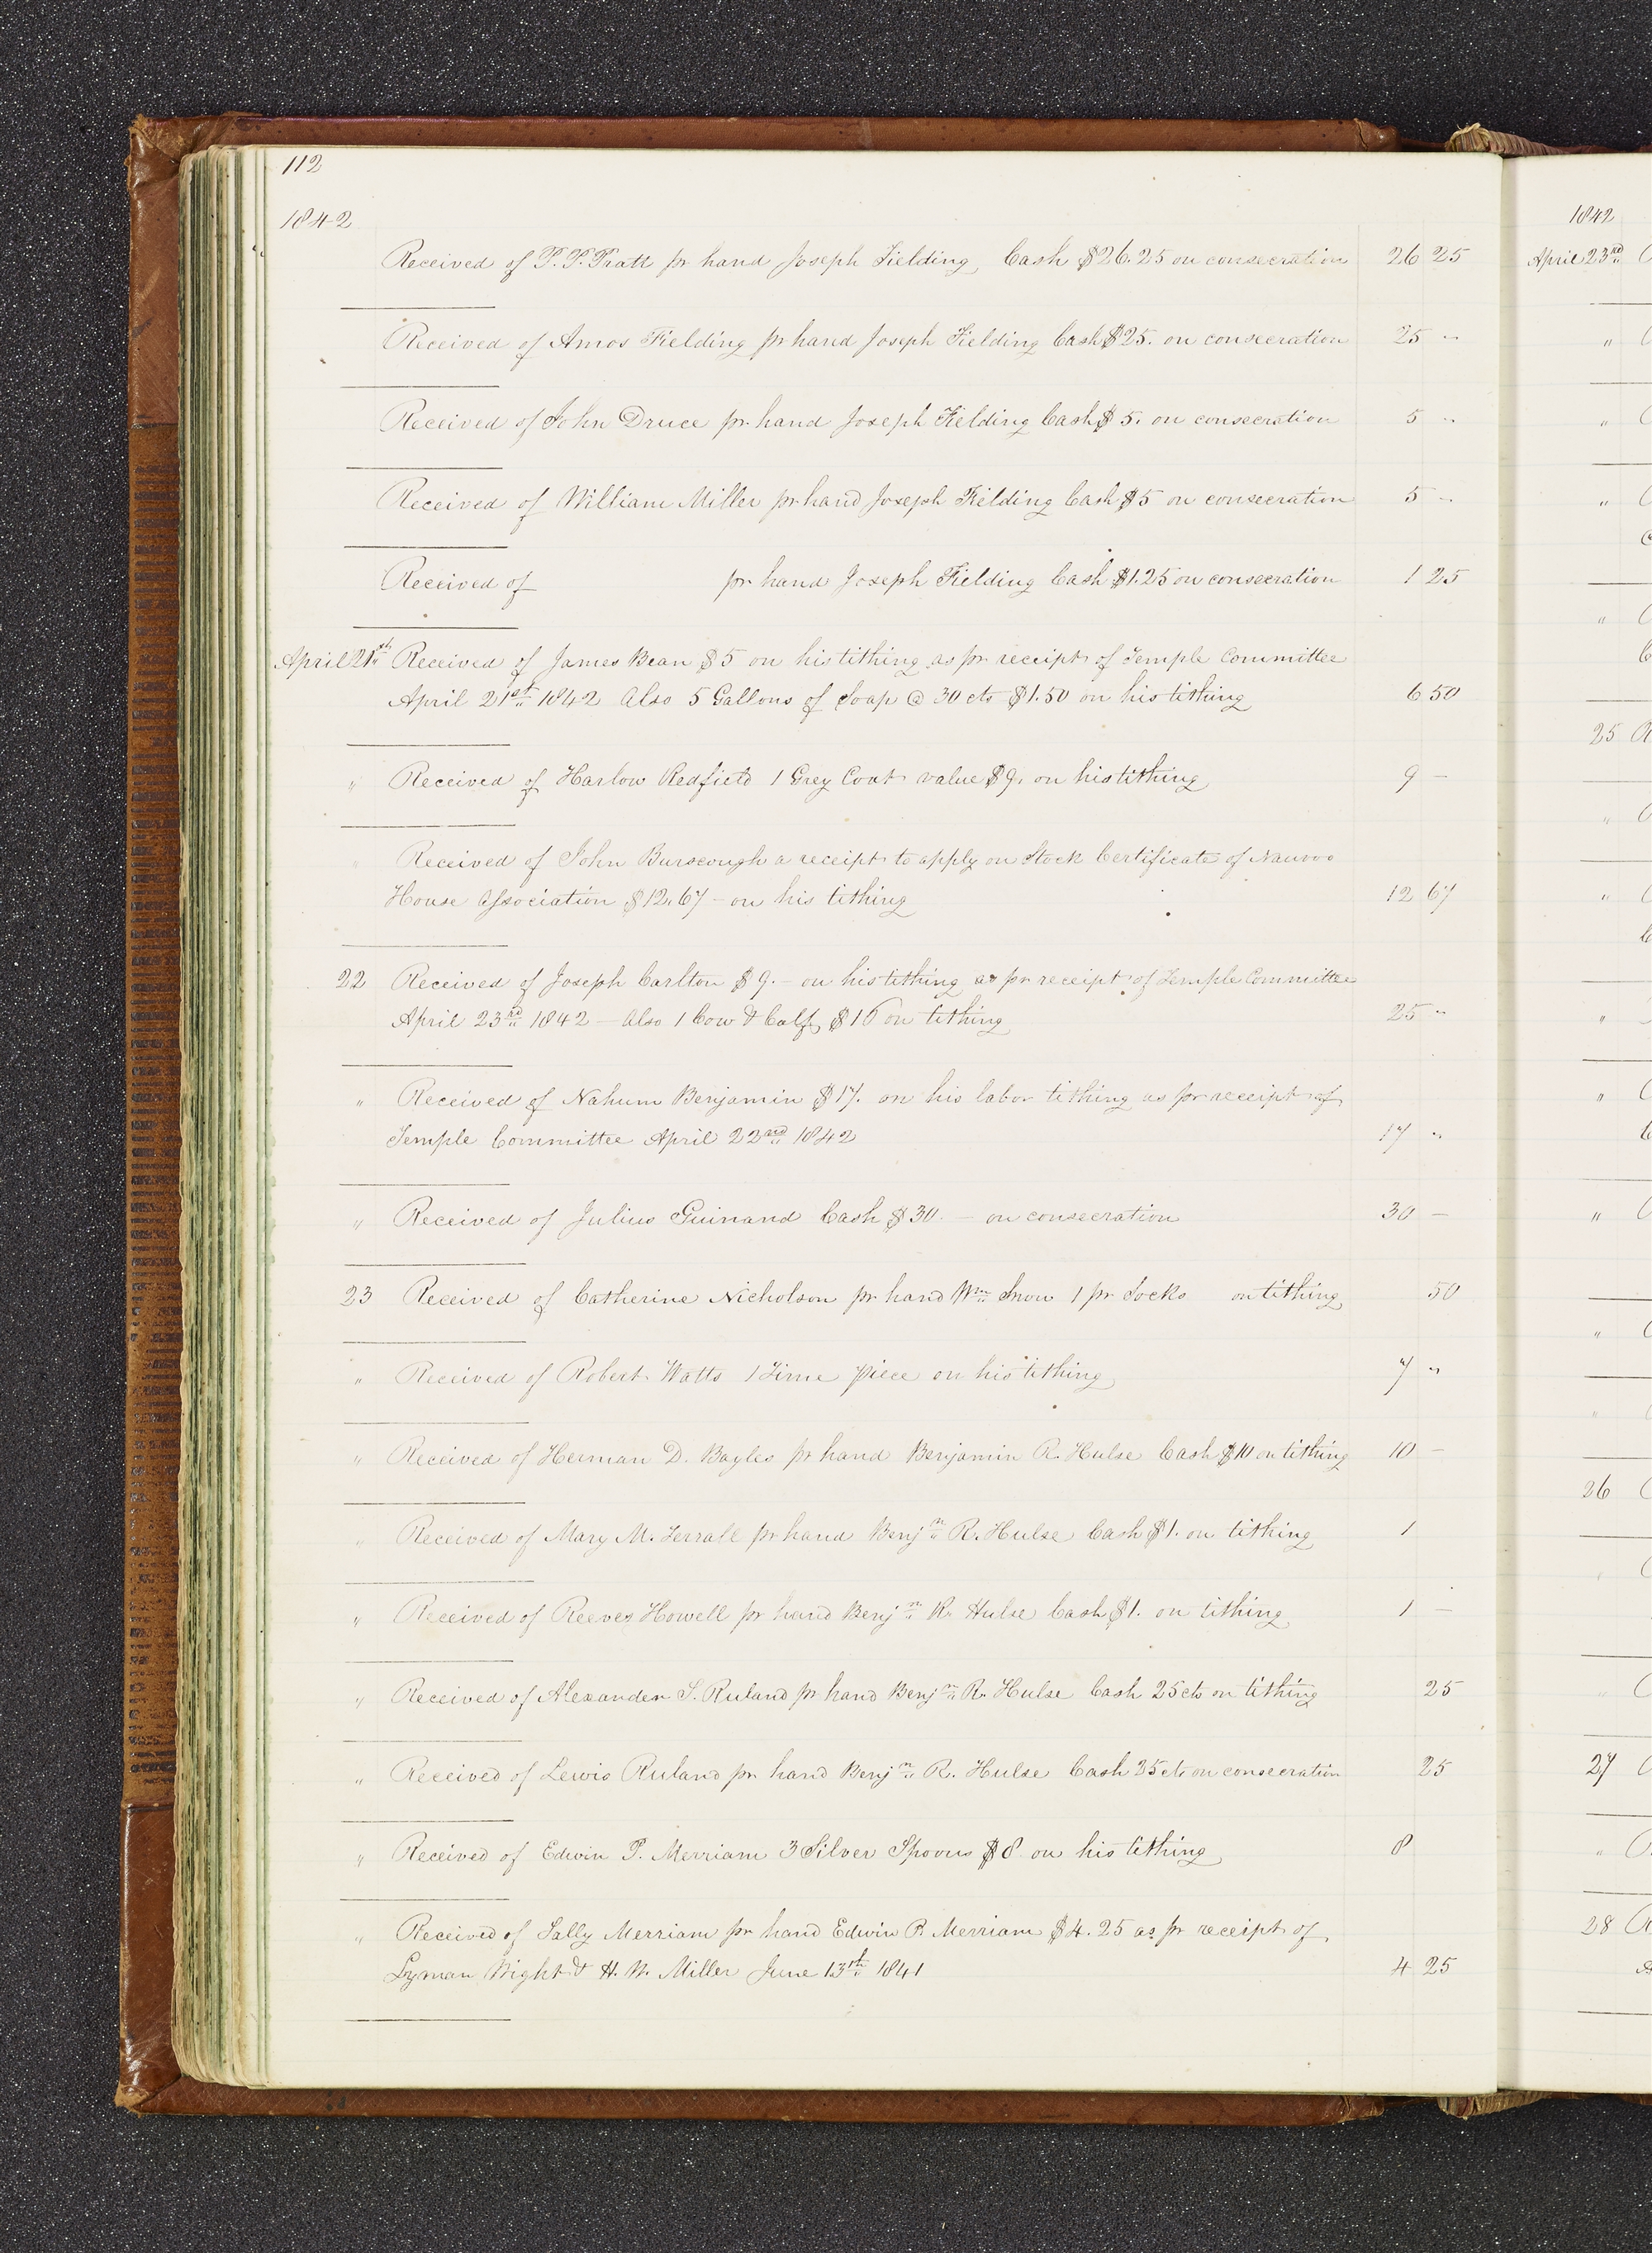 112
1842
Received of P. P. Pratt pr hand Joseph Fielding Cash $26.25 on consecration 26 25
Received of Amos Fielding pr hand Joseph Fielding Cash $25. on consecration 25 "
Received of John Druce pr. hand Joseph Fielding Cash $5. on consecration 5 "
Received of William Miller pr hand Joseph Fielding Cash $5 on consecration 5 "
Received of pr hand Joseph Fielding Cash $1.25 on consecration 1 25
April 21st Received of James Bean $5 on his tithing as pr receipt of Temple Committee
April 21st 1842 Also 5 Gallons of Soap @ 30 cts $1.50 on his tithing 6 50
" Received of Harlow Redfield 1 Grey Coat value $9. on his tithing 9 –
" Received of John Burscough a receipt to apply on Stock Certificate of Nauvoo
House Association $12.67 – on his tithing 12 67
22 Received of Joseph Carlton $9. – on his tithing as pr receipt of Temple Committee
April 23rd 1842 – Also 1 Cow & Calf $16 on tithing 25 "
" Received of Nahum Benjamin $17. on his labor tithing as pr receipt of
Temple Committee April 22nd 1842 17 "
" Received of Julius Guinand Cash $30. – on consecration 30 –
23 Received of Catherine Nicholson pr hand Wm Snow 1 pr Socks on tithing 50
" Received of Robert Watts 1 Time piece on his tithing 7 "
" Received of Herman D. Bayles pr hand Benjamin R. Hulse Cash $10 on tithing 10 –
" Received of Mary M. Terrall pr hand Benjn R. Hulse Cash $1. on tithing 1
" Received of Reeves Howell pr hand Benjn R. Hulse Cash $1. on tithing 1 –
" Received of Alexander S. Ruland pr hand Benjn R. Hulse Cash 25 cts on tithing 25
" Received of Lewis Ruland pr hand Benjn R. Hulse Cash 25 cts on consecration 25
" Received of Edwin P. Merriam 3 Silver Spoons $8 on his tithing 8
" Received of Sally Merriam pr hand Edwin P. Merriam $4.25 as pr receipt of
Lyman Wight & H. W. Miller June 13th 1841 4 25
1842
April 23rd
"
"
"
"
25
"
"
"
"
"
"
"
26
"
"
27
"
28